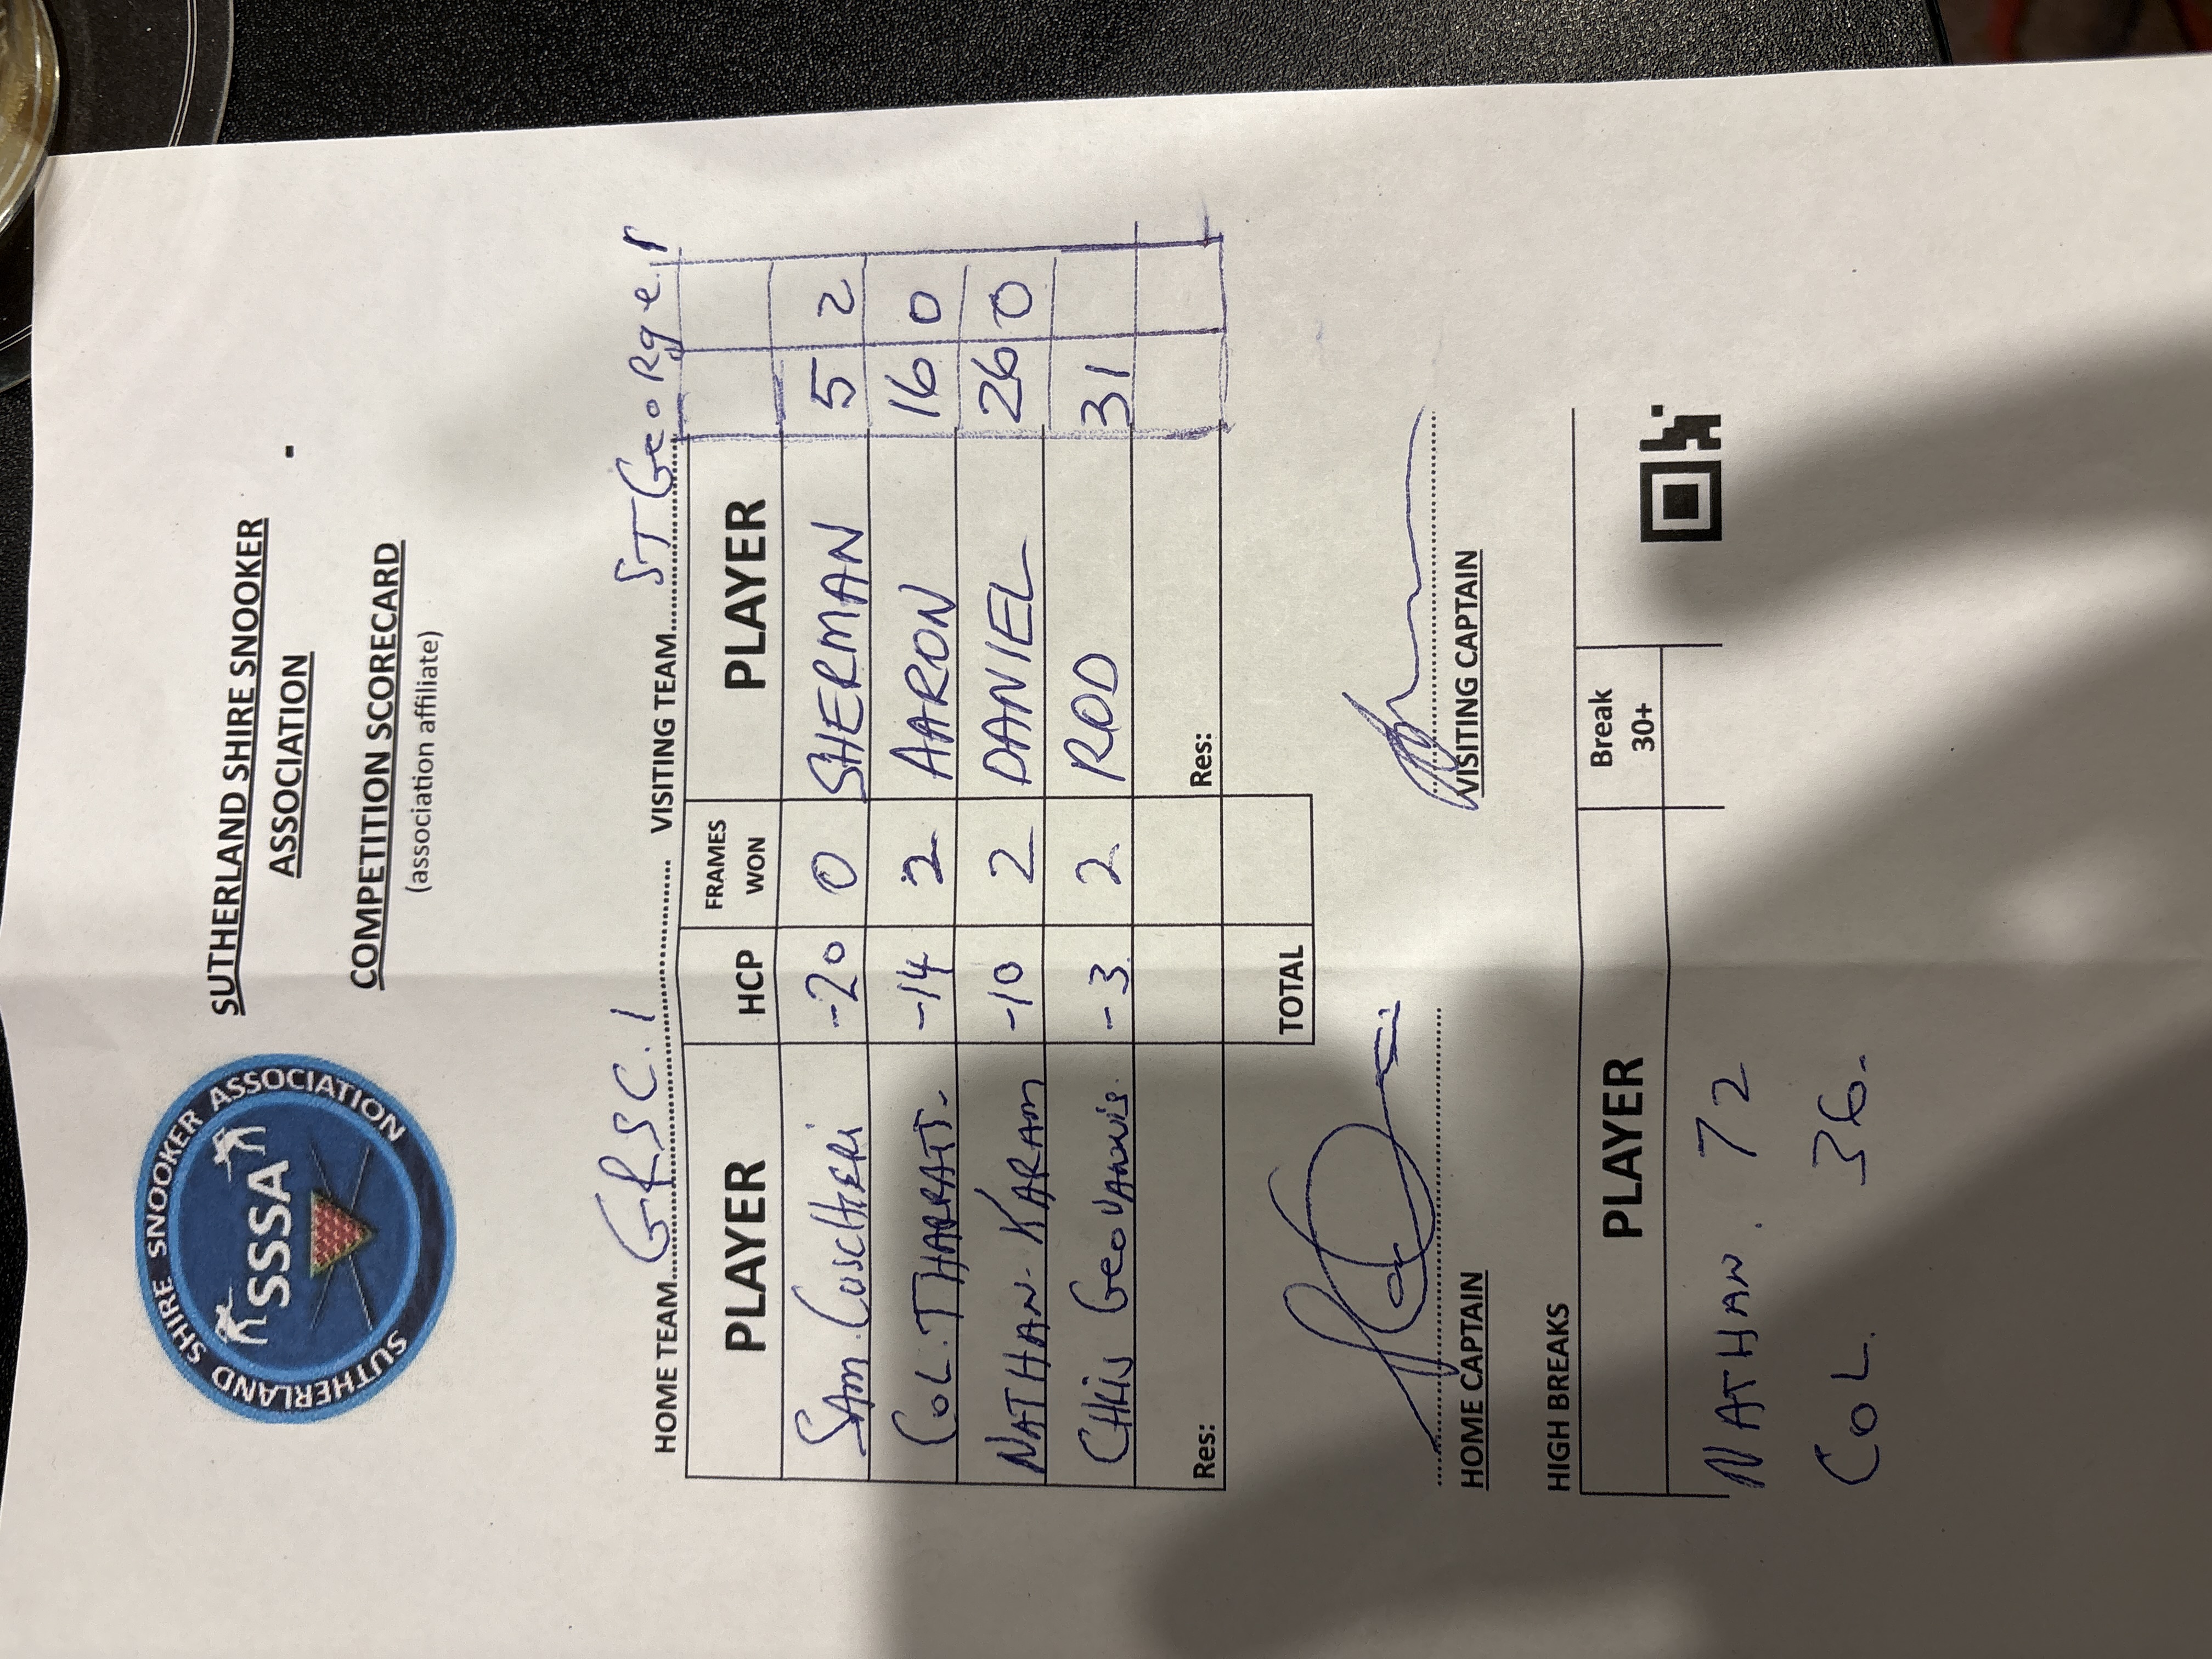 SUTHERLAND SHIRE SNOOKER ASSOCIATION
SSSA
SUTHERLAND SHIRE SNOOKER
ASSOCIATION
COMPETITION SCORECARD
(association affiliate)
HOME TEAM GRSC. 1 VISITING TEAM ST George 1
PLAYER HCP FRAMES WON PLAYER
SAM. CUSCHIERI -20 0 SHERMAN 5 2
COL. THARRATT. -14 2 AARON 16 0
NATHAN. KARAM -10 2 DANIEL 26 0
CHRIS GEOVANNIS. -3. 2 ROD 31
Res: Res:
TOTAL
HOME CAPTAIN VISITING CAPTAIN
HIGH BREAKS
PLAYER Break 30+
NATHAN. 72
COL. 36.